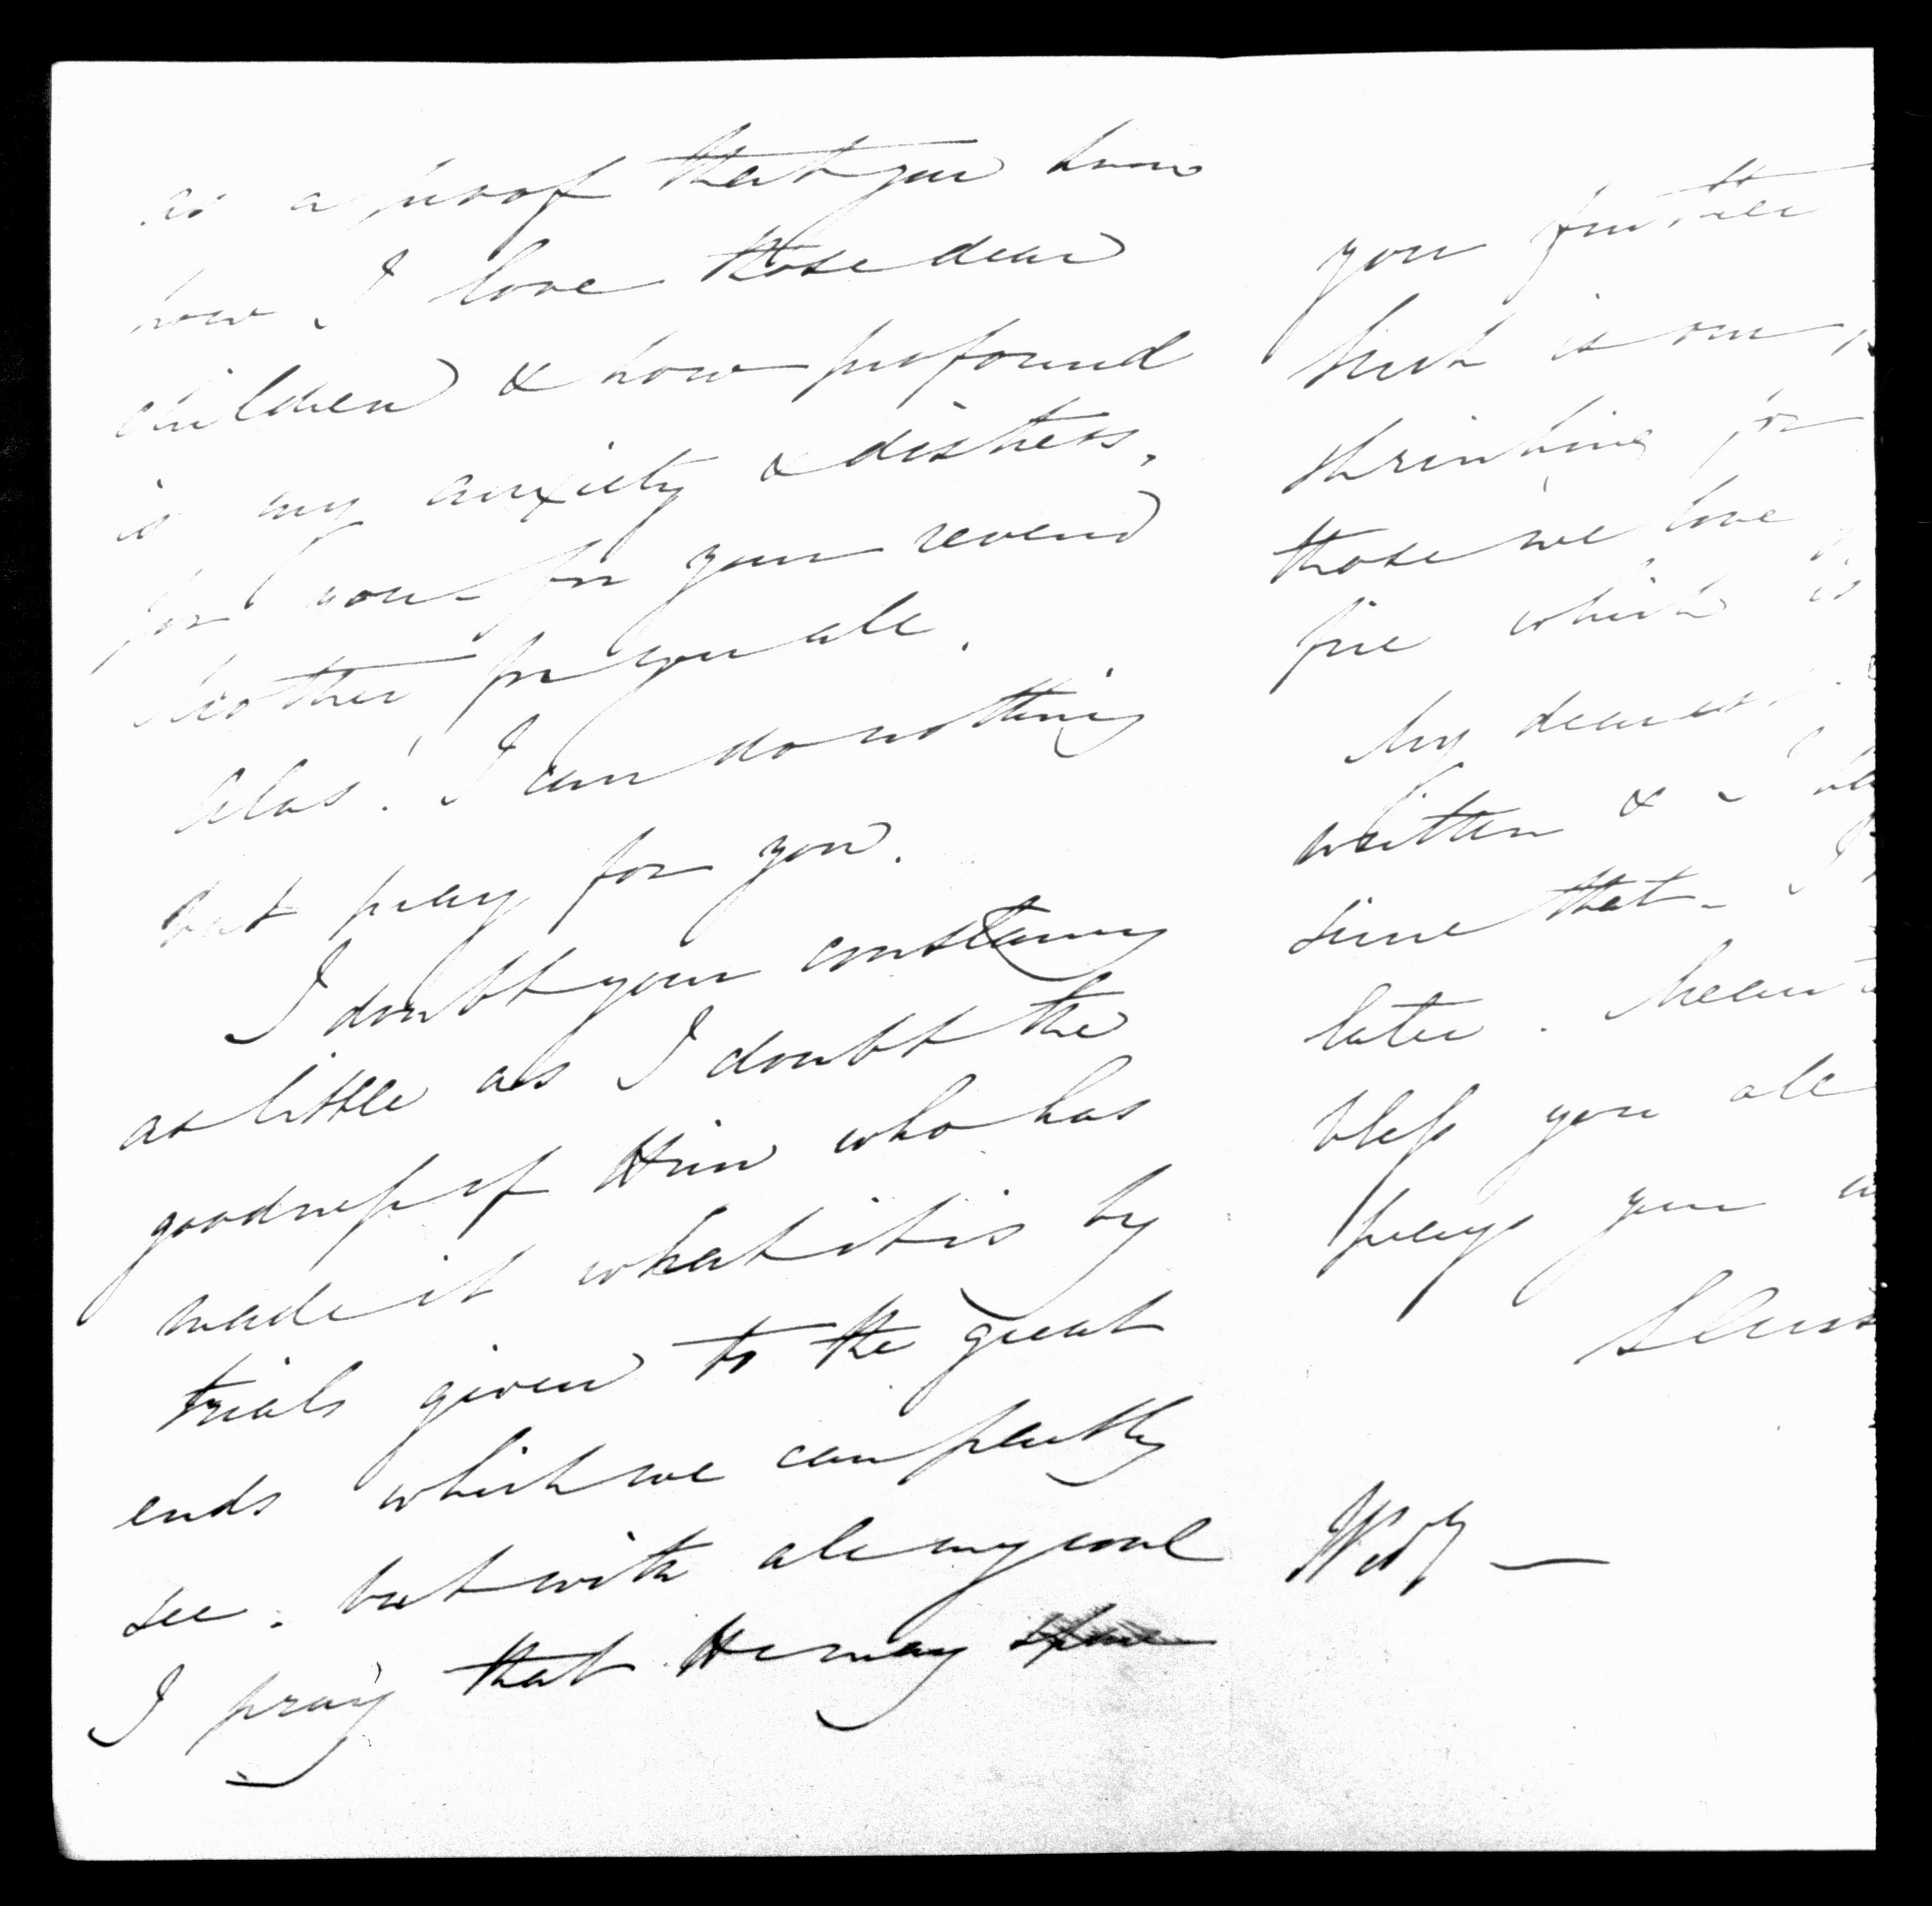 as a proof that you know
how I love those dear
children & how profound
is my anxiety & distress,
for you - for your revered
brother, for you all.
Alas! I can do nothing
but pray for you.
I doubt your constancy
as little as I doubt the
goodness of Him who has
made it what it is by
trials given to the great
ends which we can partly
see. but with all my soul
I pray that He may spare
you further
Such is our
shrinking for
those we love
fire which is
My dearest
written &
since that -
later. Mean
bless you all
pray you
Wedy —